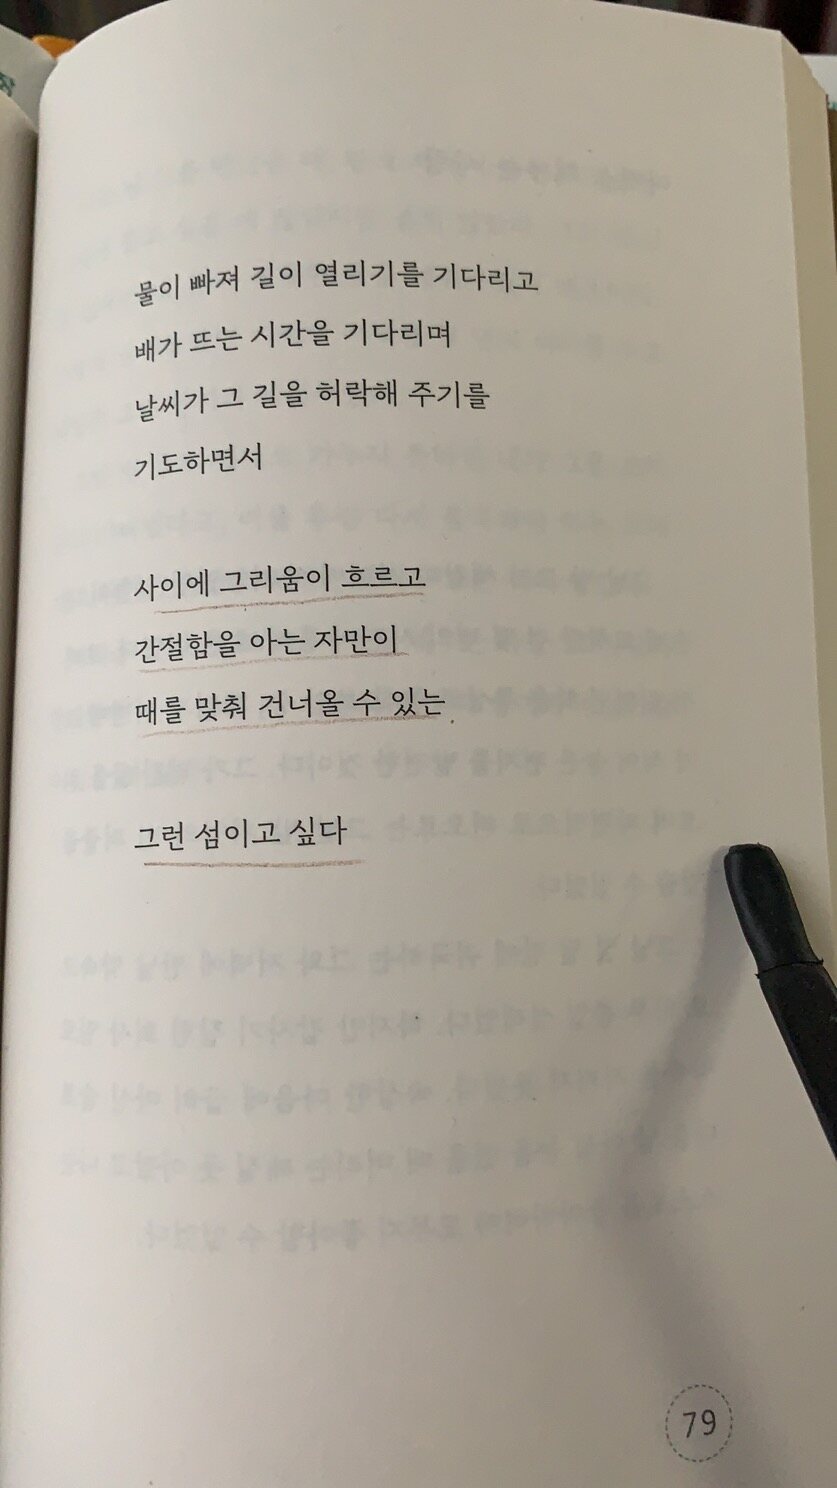 물이 빠져 길이 열리기를 기다리고
배가 뜨는 시간을 기다리며
날씨가 그 길을 허락해 주기를
기도하면서
사이에 그리움이 흐르고
간절함을 아는 자만이
때를 맞춰 건너올 수 있는
그런 섬이고 싶다
79